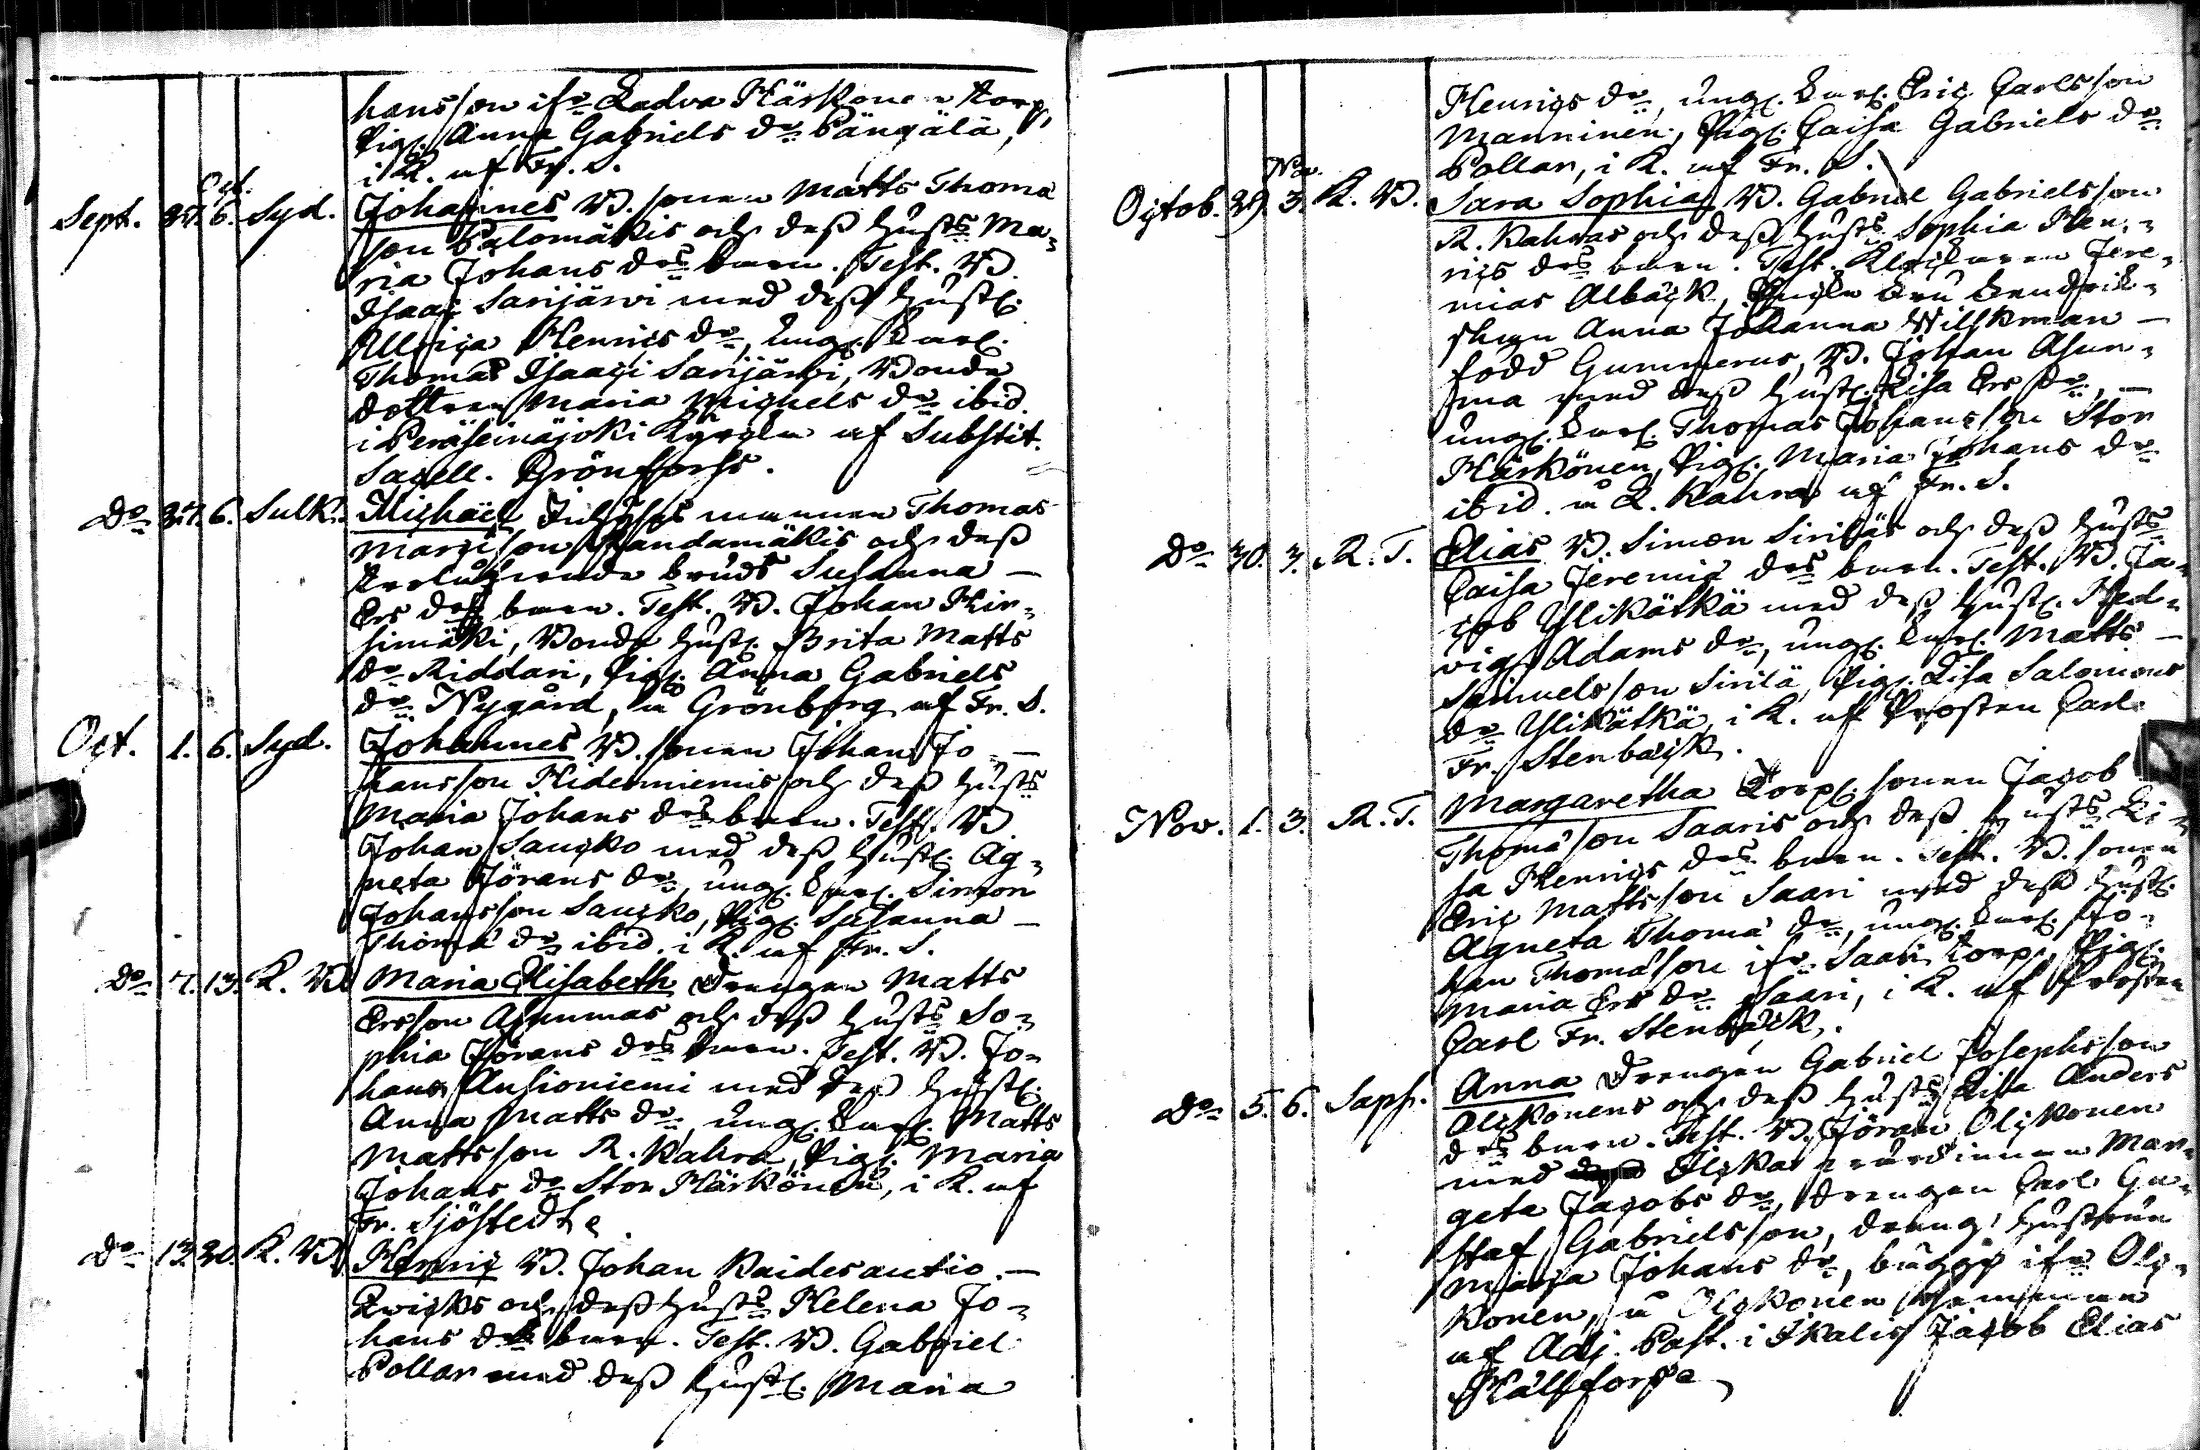 hansson ifr. Ladva Härkönen torp,
Pig. Anna Gabriels dr. Pängälä,
i K. af Fr. S.
Oct.
Sept. 27. 6. Syd. Johannes B. sonen Matts Thomä
son Palomäkis och dess hust:s Ma-
ria Johans dr:s barn. Test. B.
Isaac Sarijärvi med dess hust.
Ulrica Henrics dr, ung. karl.
Thomas Isaaci Sarijärvi, Bonde
dottren Maria Michels dr. ibid.
i Peräseinäjoki Kyrcka af Substit.
Sacell. Grönfors.
Do 27. 6. Sulk. Michaël Inhyses mannen Thomas
Marci son Randamäkis och dess
trolofvande bruds Susanna
Ers dr:s barn. Test. B. Johan Hir-
simäki, Bonde hust. Brita Matts
dr Riddari, Pig. Anna Gabriels
dr. Nygård, a Grönberg af Fr. S.
Oct. 1. 6. Syd. Johannes B. sonen Johan Jo-
hansson Hidesniemis och dess hust:s
Maria Johans dr:s barn. Test. B.
Johan Saucko med dess hust. Ag-
neta Jörans dr, ung. karl. Simon
Johansson Saucko, Pig. Susanna
Thomä dr ibid. i K. af Fr. S.
Do 7. 13. K. B. Maria Elisabeth Drengen Matts
Ersson Asunmas och dess hust:s So-
phia Jörans dr:s barn. Test. B. Jo-
hans Ansioniemi med dess hust.
Anna Matts dr, ung. karl. Matts
Mattsson R. Kahra, Pig. Maria
Johans dr Stor Härkönen, i K. af
Fr. Sjöstedt.
Do 13. 20. K. B. Henric B. Johan Kaidesautio
Lvicks och dess hust:s Helena Jo-
hans dr:s barn. Test. B. Gabriel
Pollar med dess hust. Maria
Henrics dr, ung. karl. Eric Carlsson
Manninen, Pig. Caisa Gabriels dr
Pollar, i K. af Fr. S.
Nov.
Octob. 29. 3. K. B. Sara Sophia B. Gabriel Gabrielsson
R. Kahras och dess hust:s Sophia Hen-
rics dr:s barn. Test. Klockaren Jere-
mias Albäck, Enka Fru Lendrik-
skan Anna Johanna Willkman
född Gummerus, B. Johan Asun-
ma med dess hust. Lisa Ers dr,
ung. karl. Thomas Johansson Stor
Härkönen, Pig. Maria Johans dr
ibid. a R. Kahra af Fr. S.
Do 30. 3. R. T. Elias B. Simon Siriläs och dess hust:s
Caisa Jeremiä dr:s barn. Test. B. Ja-
cob Ylikätkä med dess hust. Hed-
vig Adams dr, ung. karl. Matts
Samuelsson Sirilä, Pig. Lisa Salomons
dr Ylikätkä, i K. af Prosten Carl
Fr. Stenbäck.
Nov. 1. 3. R. T. Margaretha Torp. sonen Jacob
Thomä son Saaris och dess hust:s Li-
sa Henrics dr:s barn. Test. B. sonen
Eric Mattsson Saari med dess hust.
Agneta Thomä dr, ung. karl. Jo-
han Thomä son ifr. Saari torp, Pig.
Maria Ers dr Saari, i K. af Prosten
Carl Fr. Stenbäck.
Do 5. 6. Saph. Anna Drengen Gabriel Josephsson
Olckonens och dess hust:s Lisa Anders
dr:s barn. Test. B. Jöran Olckonen
med Ilcka värdinnan Mar-
geta Jacobs dr, Drengen Carl Gu-
staf Gabrielsson, dreng hustrun
Maria Johans dr, bägge ifr. Olc-
konen, a Olckonen hemman
af Adj. Past. i Ikalis Jacob Elias
Hällfors.